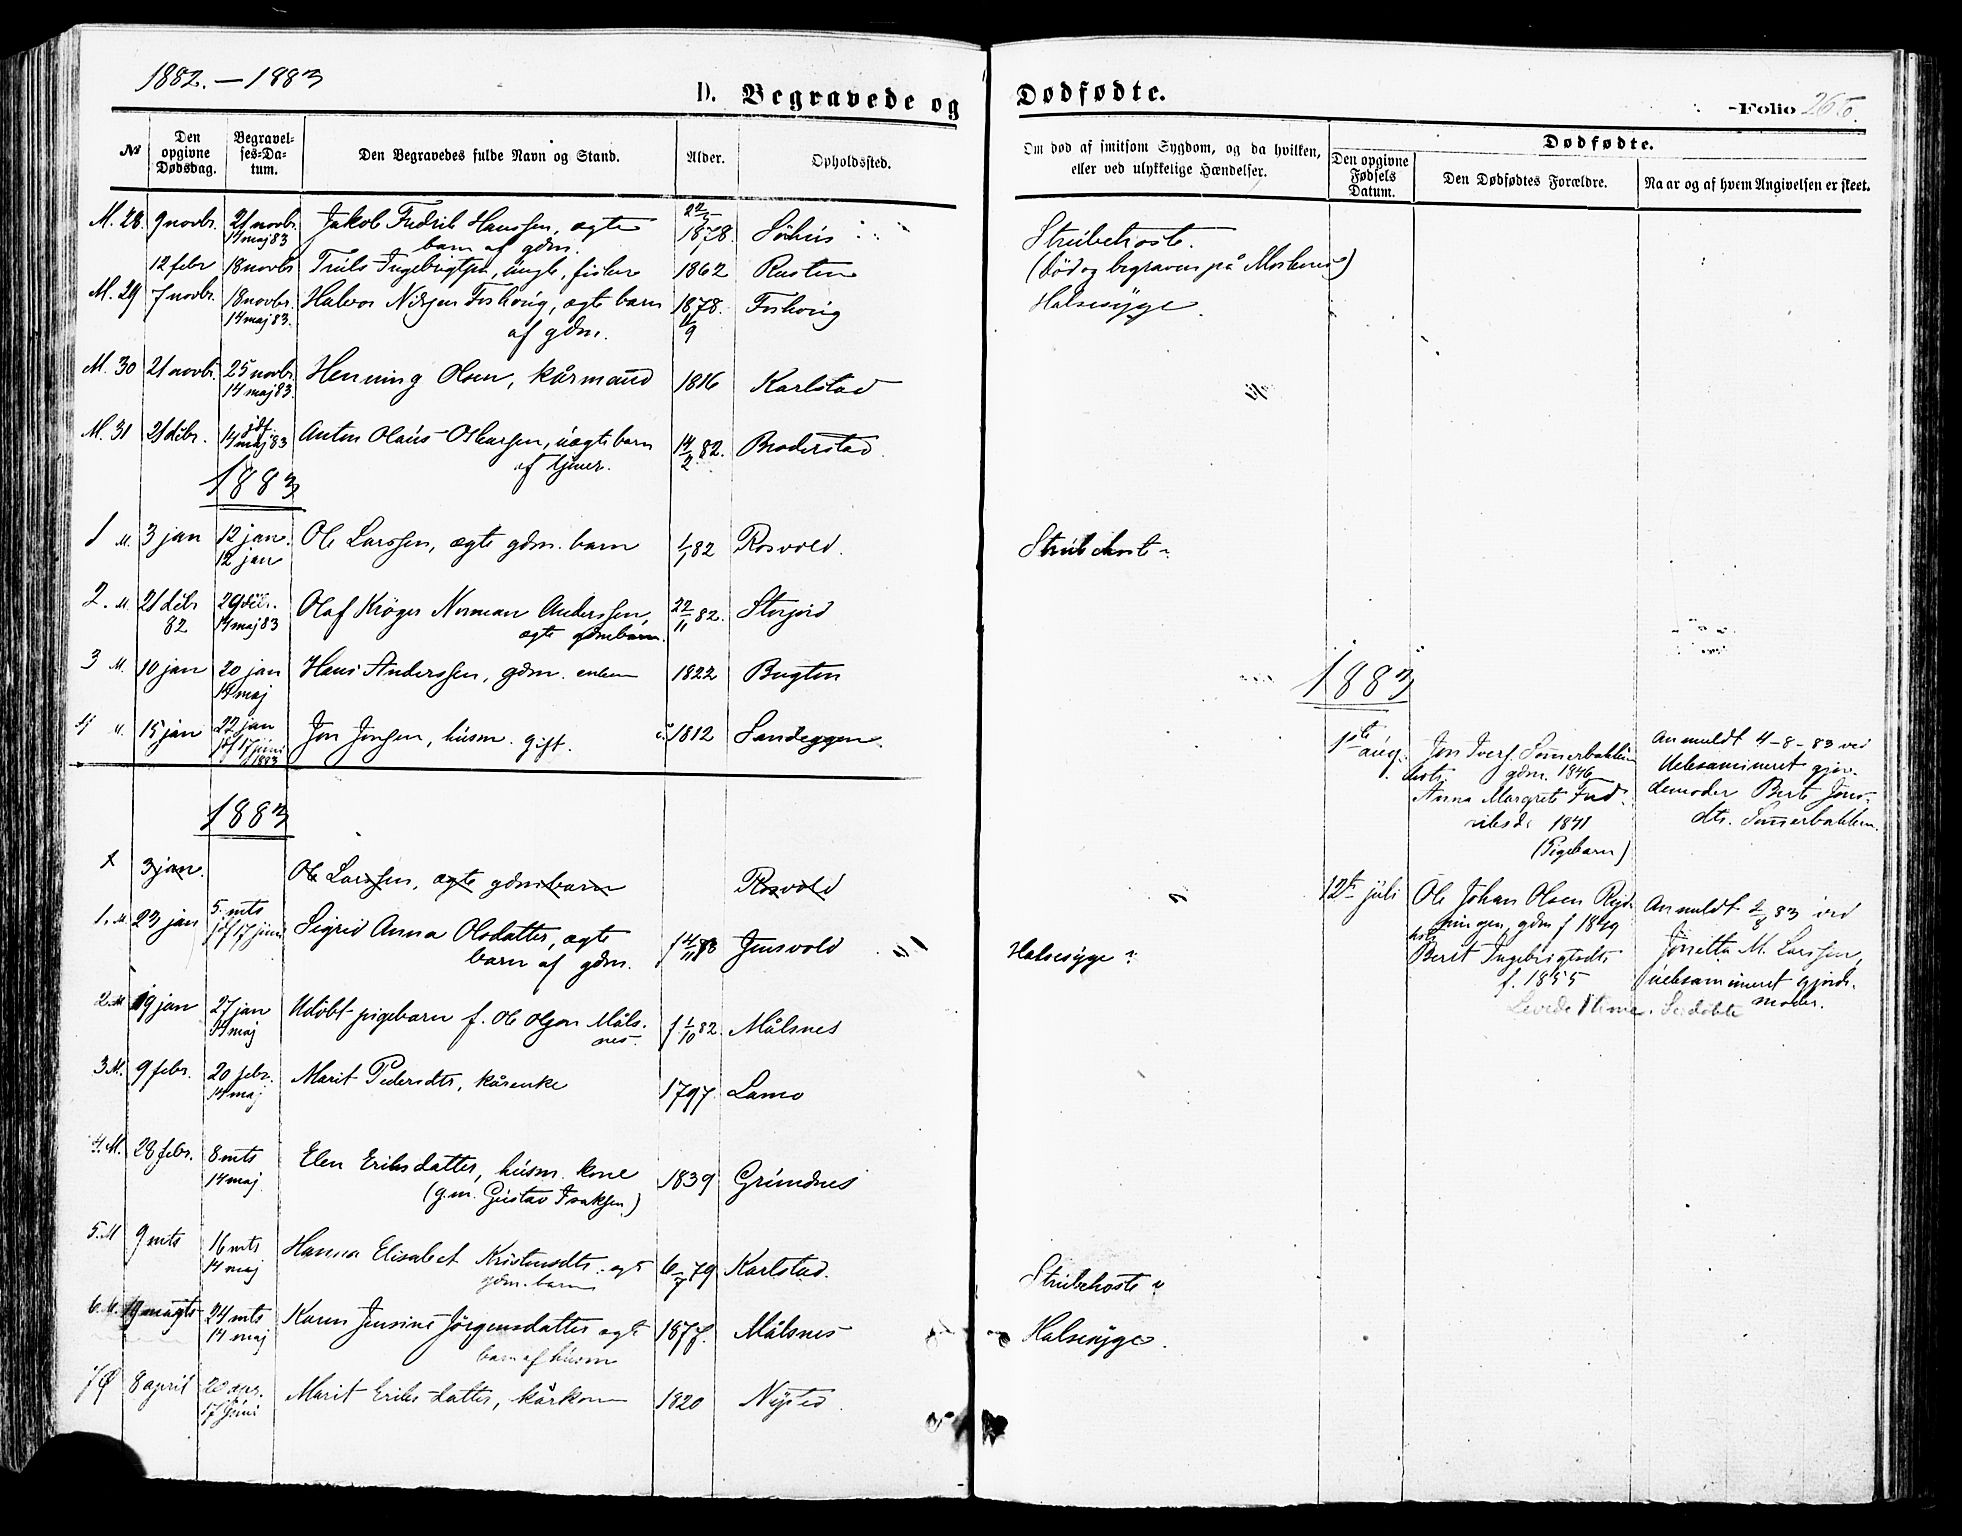 1882. — 1883
D. Begravede og
Dødfødte.
Folio 266.
No
Den opgivne Dødsdag.
Begravel-ses-Da-tum.
Den Begravedes fulde Navn og Stand.
Alder.
Opholdssted.
Om død af smitsom Sygdom, og da hvilken, eller ved ulykkelige Hændelser.
Dødfødte.
Den opgivne Fødsels Datum.
Den Dødfødtes Forældre.
Naar og af hvem Angivelsen er skeet.
M. 28. 9 novbr. 21 novbr. Jakob Fredrik Hanssen, ægte 22/5 1878. Søhus Strubehoste.
14 maj 83 barn af gdm.
12 febr 18 novbr Truls Ingebrigtsen, ungk, fisker 1862 Rusten (død og begraven på Moskenes)
M. 29 7 novbr. 18 novbr. Halvor Nilsen Foshoug, ægte barn 1878. Foshoug Halsesyge.
14 maj 83. af gdm. 11/9
M. 30 21 novbr. 25 novbr. Henning Olsen, kårmand 1816 Karlstad
14 maj 83.
M. 31 21 debr. jdf. 14 maj 83 Anton Olaus Oskarsen, uægte barn 14/2 82. Broderstad
af tjener.
1883
1 M. 3 jan 12 jan. Ole Larssen, ægte gdm. barn 1/1 82 Rosvold. Strubehoste
12 jan
2. M. 21 debr 82 29 debr. Olaf Krøger Norman Anderssen, 22/11 82. Storjord
14 maj 83 ægte gdmsbarn.
3 M. 10 jan 20 jan Hans Anderssen, gdm. enkem 1822 Bugten
14 maj
4 M. 15 jan 22 jan Jon Jonsen, husm. gift. 1812 Sandeggen.
jdf 17 juni 1883
1883
1 3 jan. Ole Larssen, ægte gdm barn Rosvold
1. M. 23 jan 5. mts Sigrid Anna Olsdatter, ægte f 4/11 78 Jensvold Halsesyge
jdf 17 juni barn af gdm.
2. M 19 jan 27 jan Udøbt pigebarn f. Ole Olsen Måls- f. 1/10 82. Målsnes
14 maj nes.
3 M. 9 febr. 20 febr. Marit Pedersdtr, kårenke 1797. Lamo
14 maj
4. M. 28 febr. 8 mts Elen Eriksdatter, husm. kone 1839 Grundnes
14 maj. (g.m. Gustav Isaksen)
5. M 9 mts 16 mts Hanna Elisabet Kristensdtr. ægt 6/7 79 Karlstad. Strubehoste
14 maj gdm. barn
6. M. 19 24 mts Karen Jensine Jørgensdatter ægt 1877. Målsnes Halsesyge.
14 maj barn af husm
7 Ø 8 april 20 apr. Marit Eriksdatter, kårkone 1820 Nysted
17 juni
1883
1ste aug. Jon Ivers. Sømerbakken
gdm. 1846
Anna Margrete Fred-
riksd. 1841
(Pigebarn)
Anmeldt 4-8-83 ved
Uexamineret gjor-
demoder Berte Jons-
dtr. Sømerbakken.
12te juli Ole Johan Olsen
gdm f 1849
Beret Ingebrigtsdtr
f. 1855
Levede 1 time.
Anmeldt 2/8 83 ved
M. Larssen,
Uexamineret gjorde-
moder.